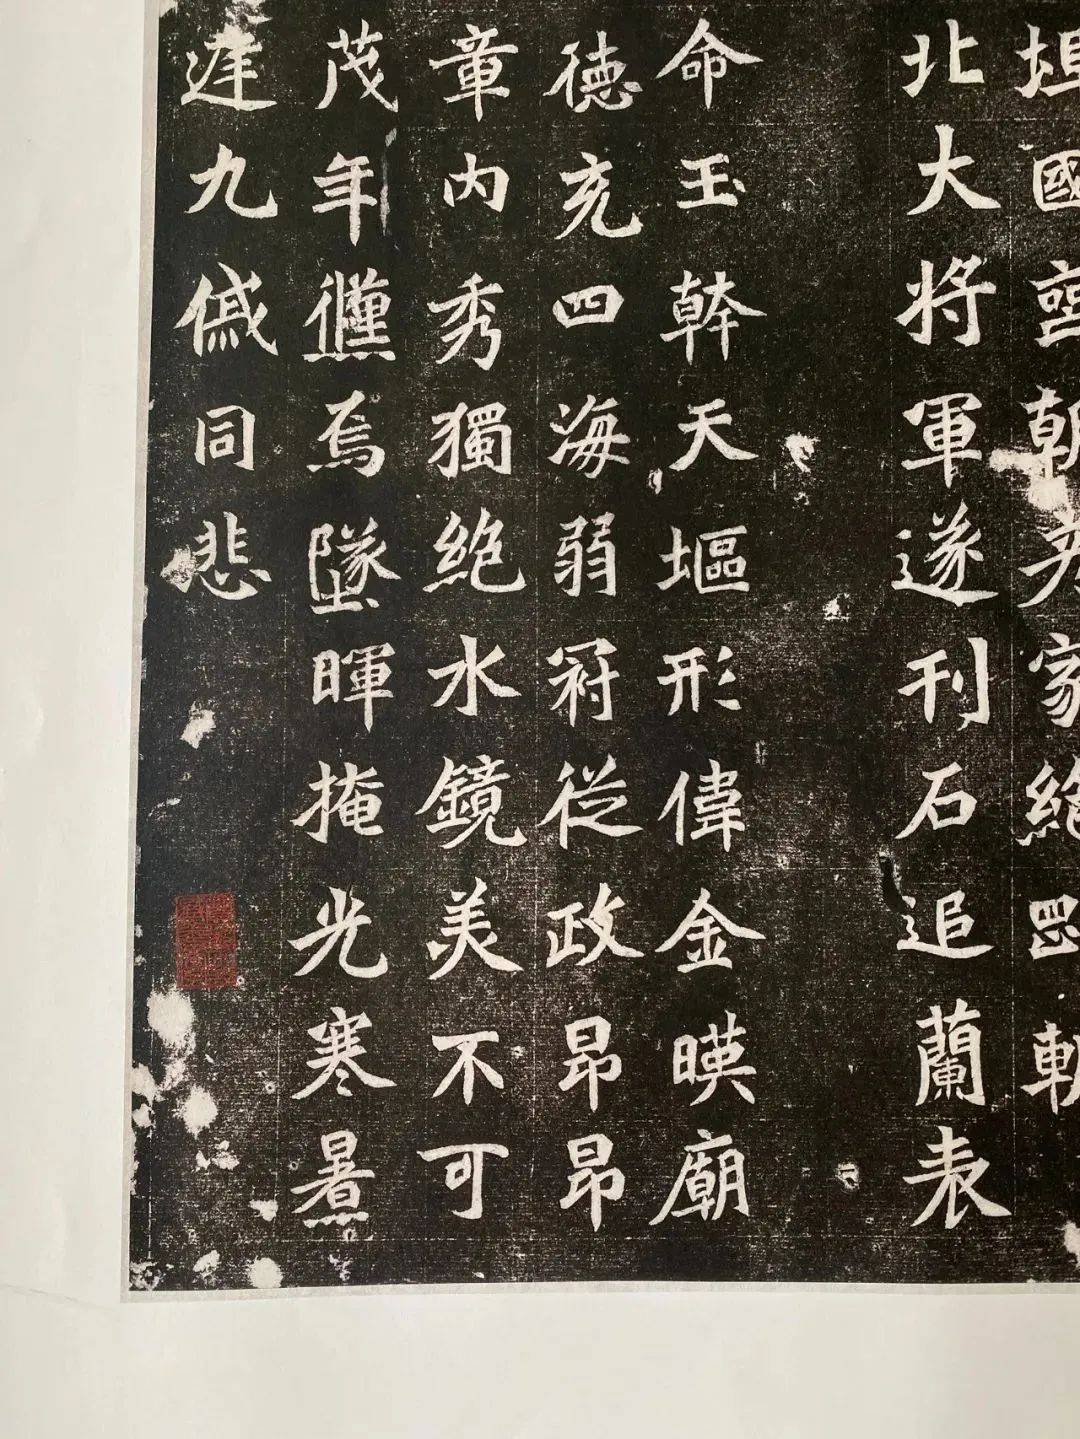 坦國朝家絶
北大将軍遂刊石追蘭表
命玉幹天塸形偉金暎廟
德充四海弱冠從政昂昂
章內秀獨絶水鏡美不可
茂年焉墜暉掩光寒暑
九傶同悲